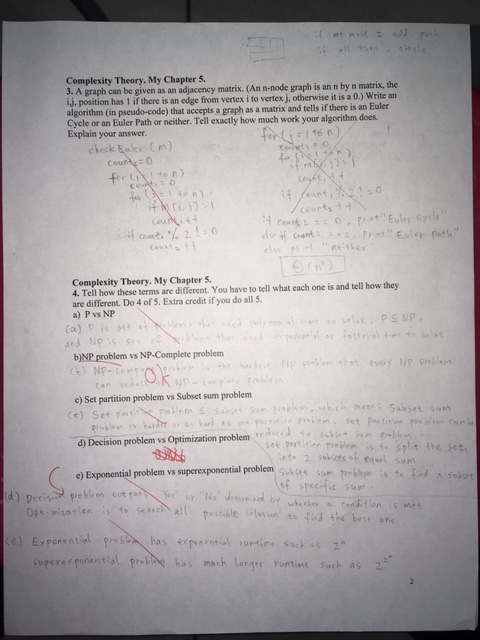 if at most 2 odd, path
if all even, circle
Complexity Theory. My Chapter 5.
3. A graph can be given as an adjacency matrix. (An n-node graph is an n by n matrix, the
i,j, position has 1 if there is an edge from vertex i to vertex j, otherwise it is a 0.) Write an
algorithm (in pseudo-code) that accepts a graph as a matrix and tells if there is an Euler
Cycle or an Euler Path or neither. Tell exactly how much work your algorithm does.
Explain your answer.
check Euler (m)
count2 = 0
for (i = 1 to n)
count1 = 0
for (j = 1 to n)
if m[i,j] = 1
count1 ++
if count1 % 2 != 0
count2 ++
for (j = 1 to n)
count1 = 0
for (i = 1 to n)
if m[i,j] = 1
count1 ++
if count1 % 2 != 0
count2 ++
if count2 == 0, print "Euler Cycle"
else if count2 == 2, print "Euler path"
else print "neither"
Θ(n²)
Complexity Theory. My Chapter 5.
4. Tell how these terms are different. You have to tell what each one is and tell how they
are different. Do 4 of 5. Extra credit if you do all 5.
a) P vs NP
(a) P is set of problems that need polynomial time to solve, P ⊆ NP.
and NP is set of problems that need exponential or factorial time to solve
b)NP problem vs NP-Complete problem
(b) NP-Complete problem is the hardest NP problem that every NP problem
can reduce NP-complete problem
O.K
c) Set partition problem vs Subset sum problem
(c) Set partition problem ≤ subset sum problem, which means subset sum
problem is harder or as hard as set partition problem, set partition problem can be
reduced to subset sum problem
d) Decision problem vs Optimization problem
set partition problem is to split the sets
into 2 subsets of equal sum
e) Exponential problem vs superexponential problem
subset sum problem is to find a subset
of specific sum
(d) Decision problem outputs "Yes" or "No" determined by whether a condition is met
Optimization is to search all possible solution to find the best one
(e) Exponential problem has exponential runtime such as 2ⁿ
superexponential problem has much longer runtime such as 2^2ⁿ
2